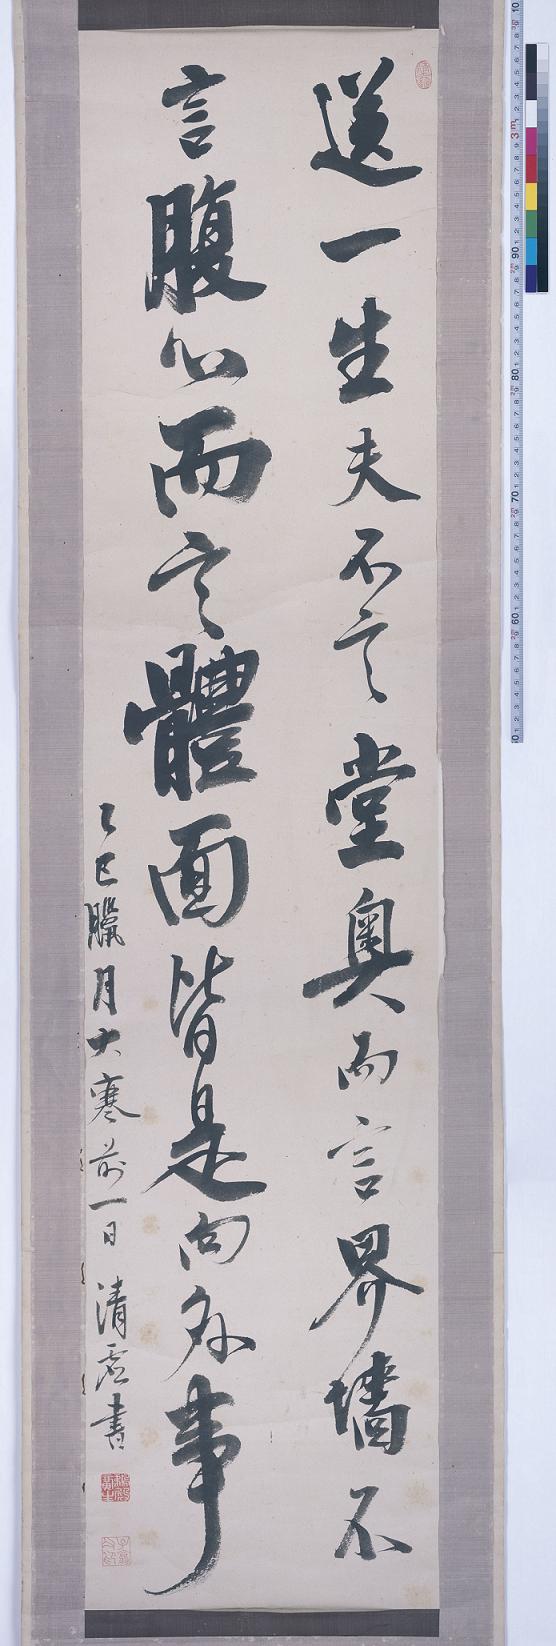 送一生夫不言堂奥而言界墻不
言腹心而言體面皆是向外事
乙巳臘月大寒前一日清虚書